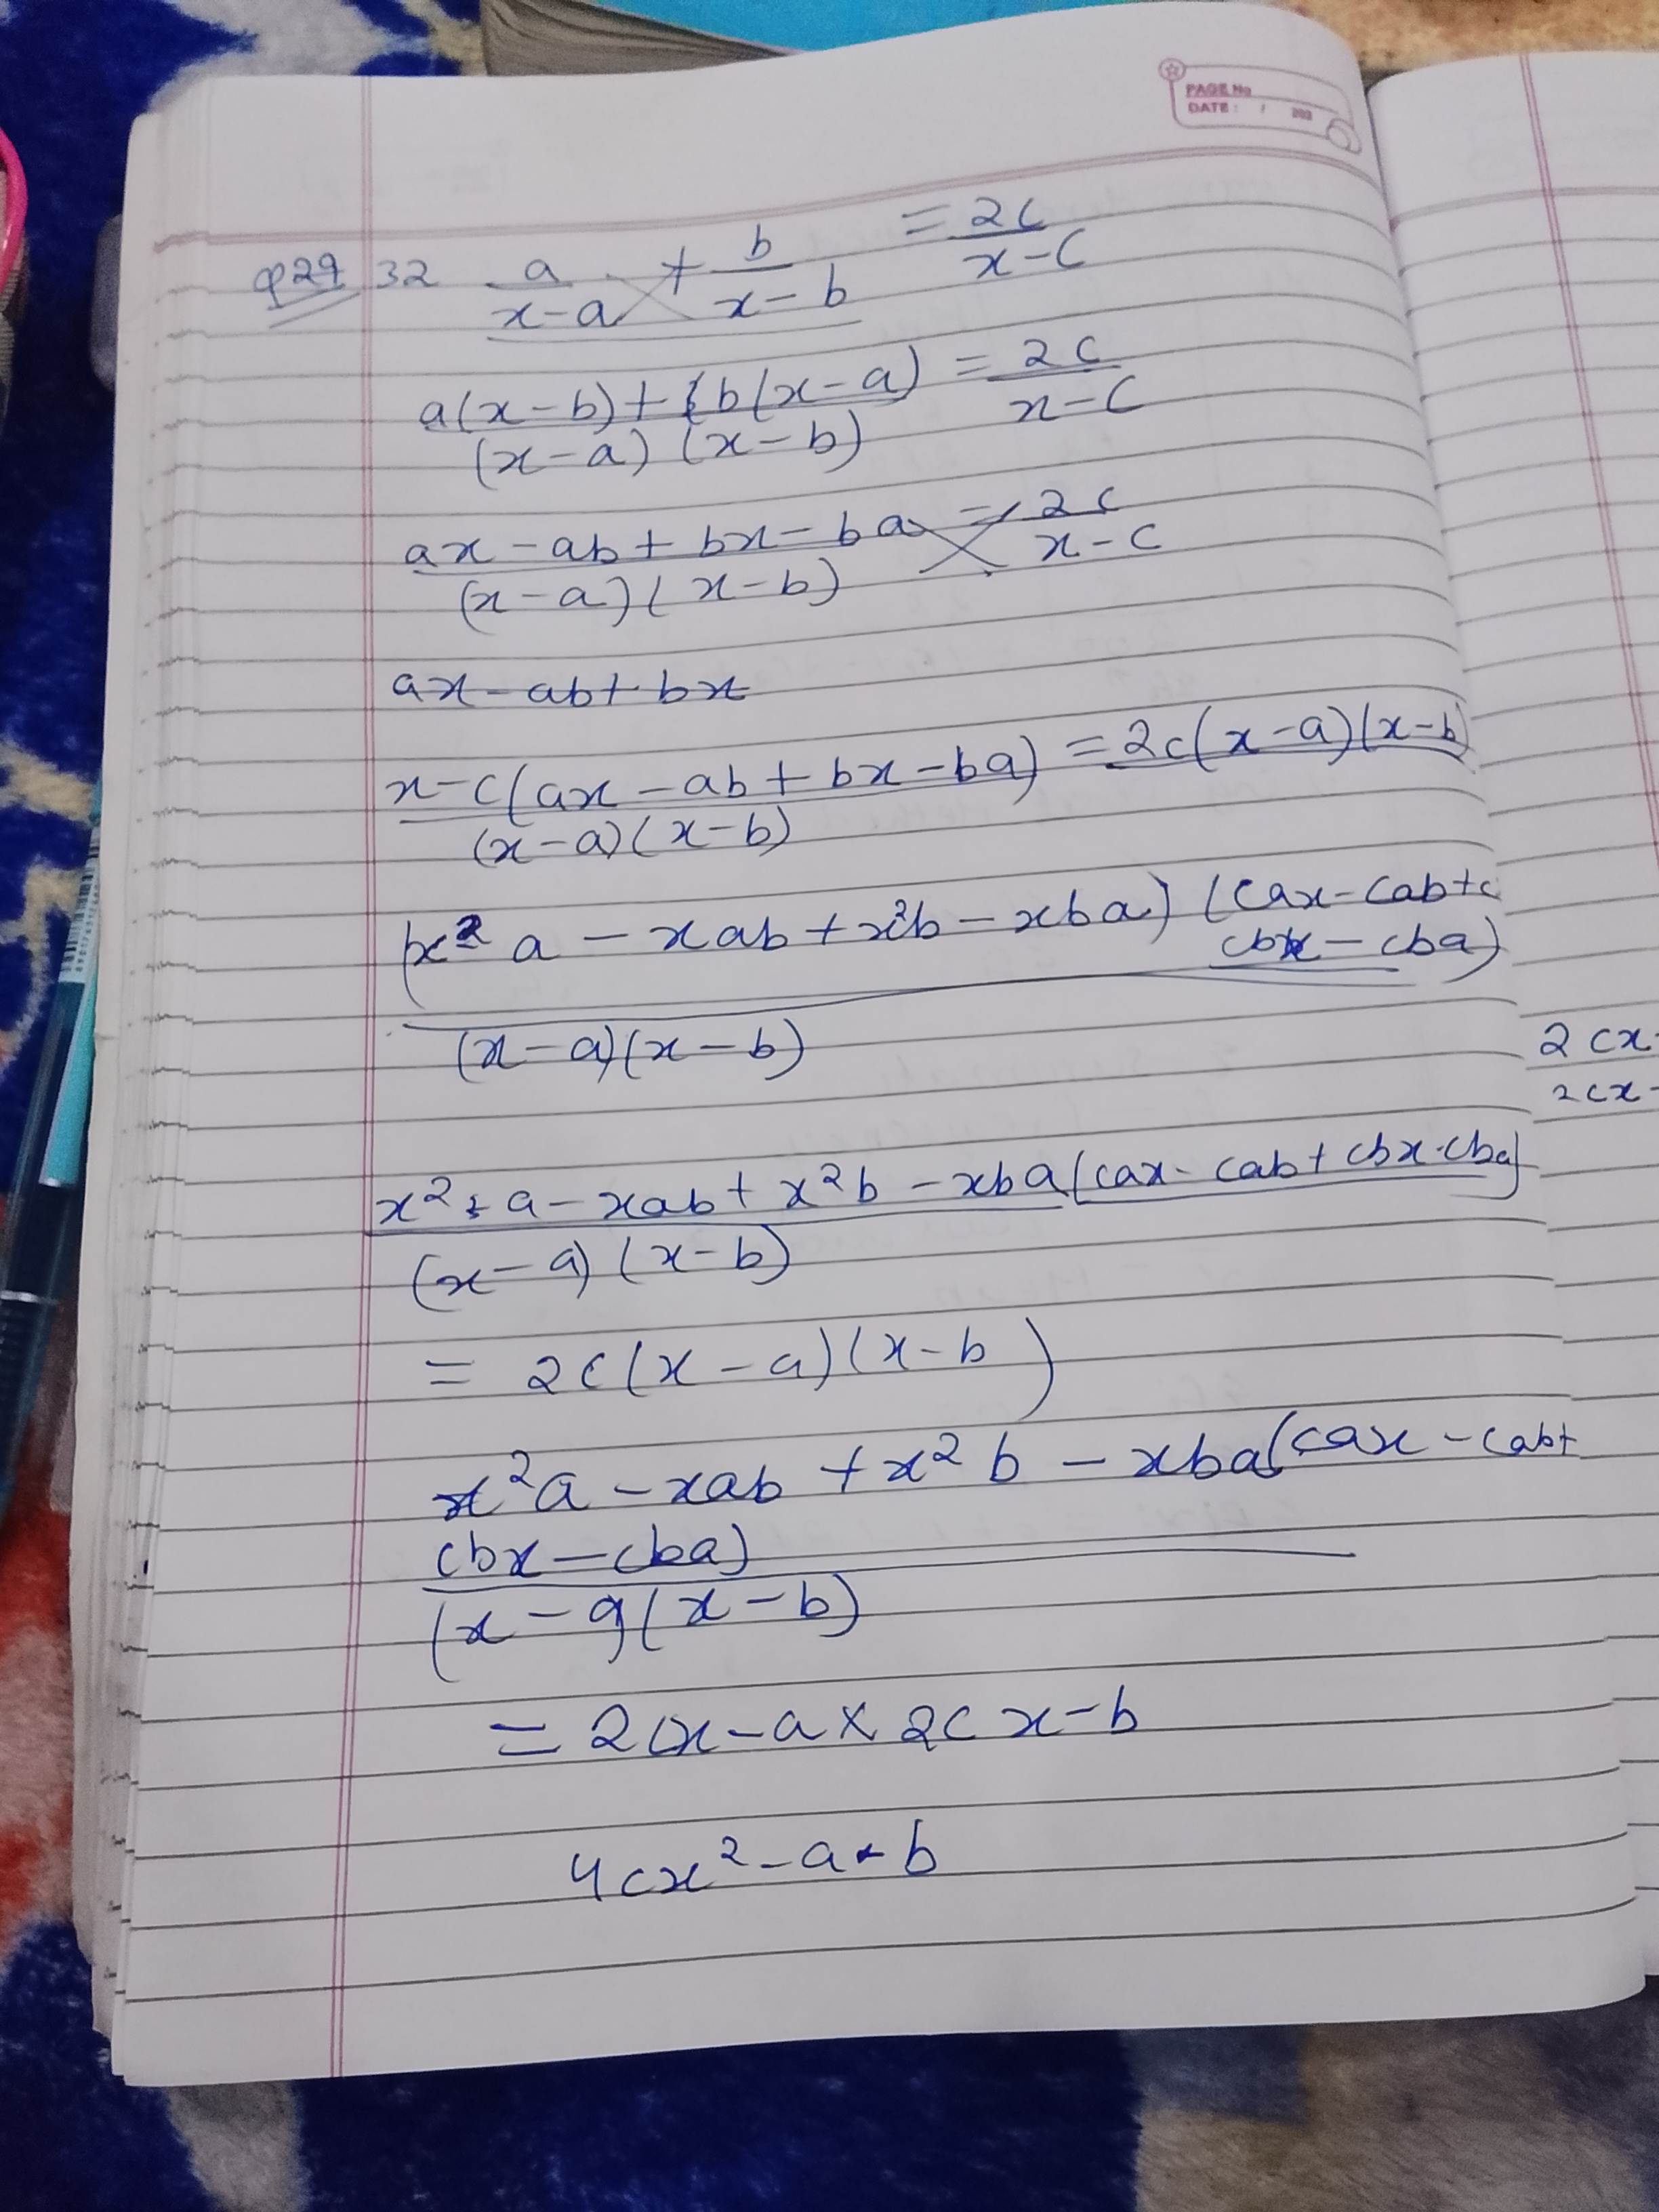 PAGE No
DATE: / 202
Q29 32 a/(x-a) + b/(x-b) = 2c/(x-c)
a(x-b)+(b(x-a) = 2c
(x-a)(x-b) x-c
ax-ab+bx-ba = 2c
(x-a)(x-b) x-c
ax-ab+bx
x-c(ax-ab+bx-ba) = 2c(x-a)(x-b)
(x-a)(x-b)
(x²a - xab + x²b - xba) (cax-cab+c
cbx-cba)
(x-a)(x-b)
2cx-
2cx-
x² a - xab + x²b - xba(cax-cab+cbx-cba)
(x-a)(x-b)
= 2c(x-a)(x-b)
x²a - xab + x²b - xba(cax-cab+
cbx-cba)
(x-a)(x-b)
= 2cx-a×2cx-b
4cx²-a-b